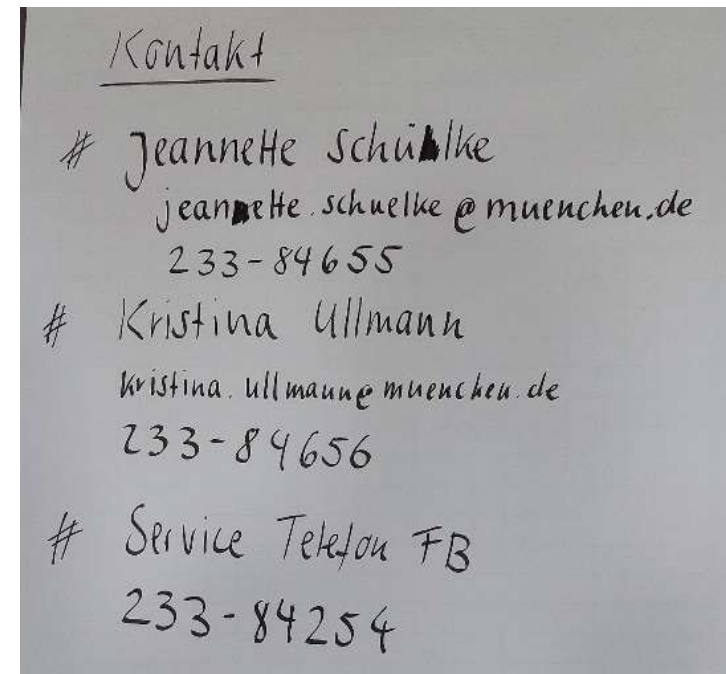 Kontakt
# Jeannette Schülke
jeannette.schuelke@muenchen.de
233-84655
# Kristina Ullmann
kristina.ullmann@muenchen.de
233-84656
# Service Telefon FB
233-84254